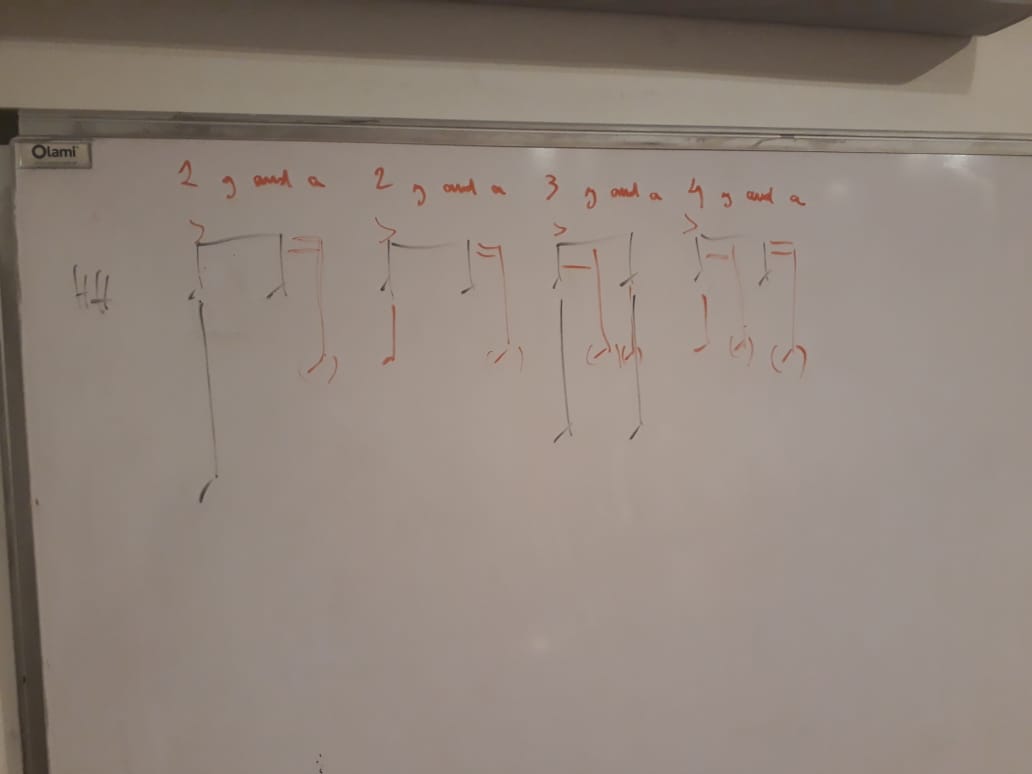 Olami
1 y and a 2 y and a 3 y and a 4 y and a
HH